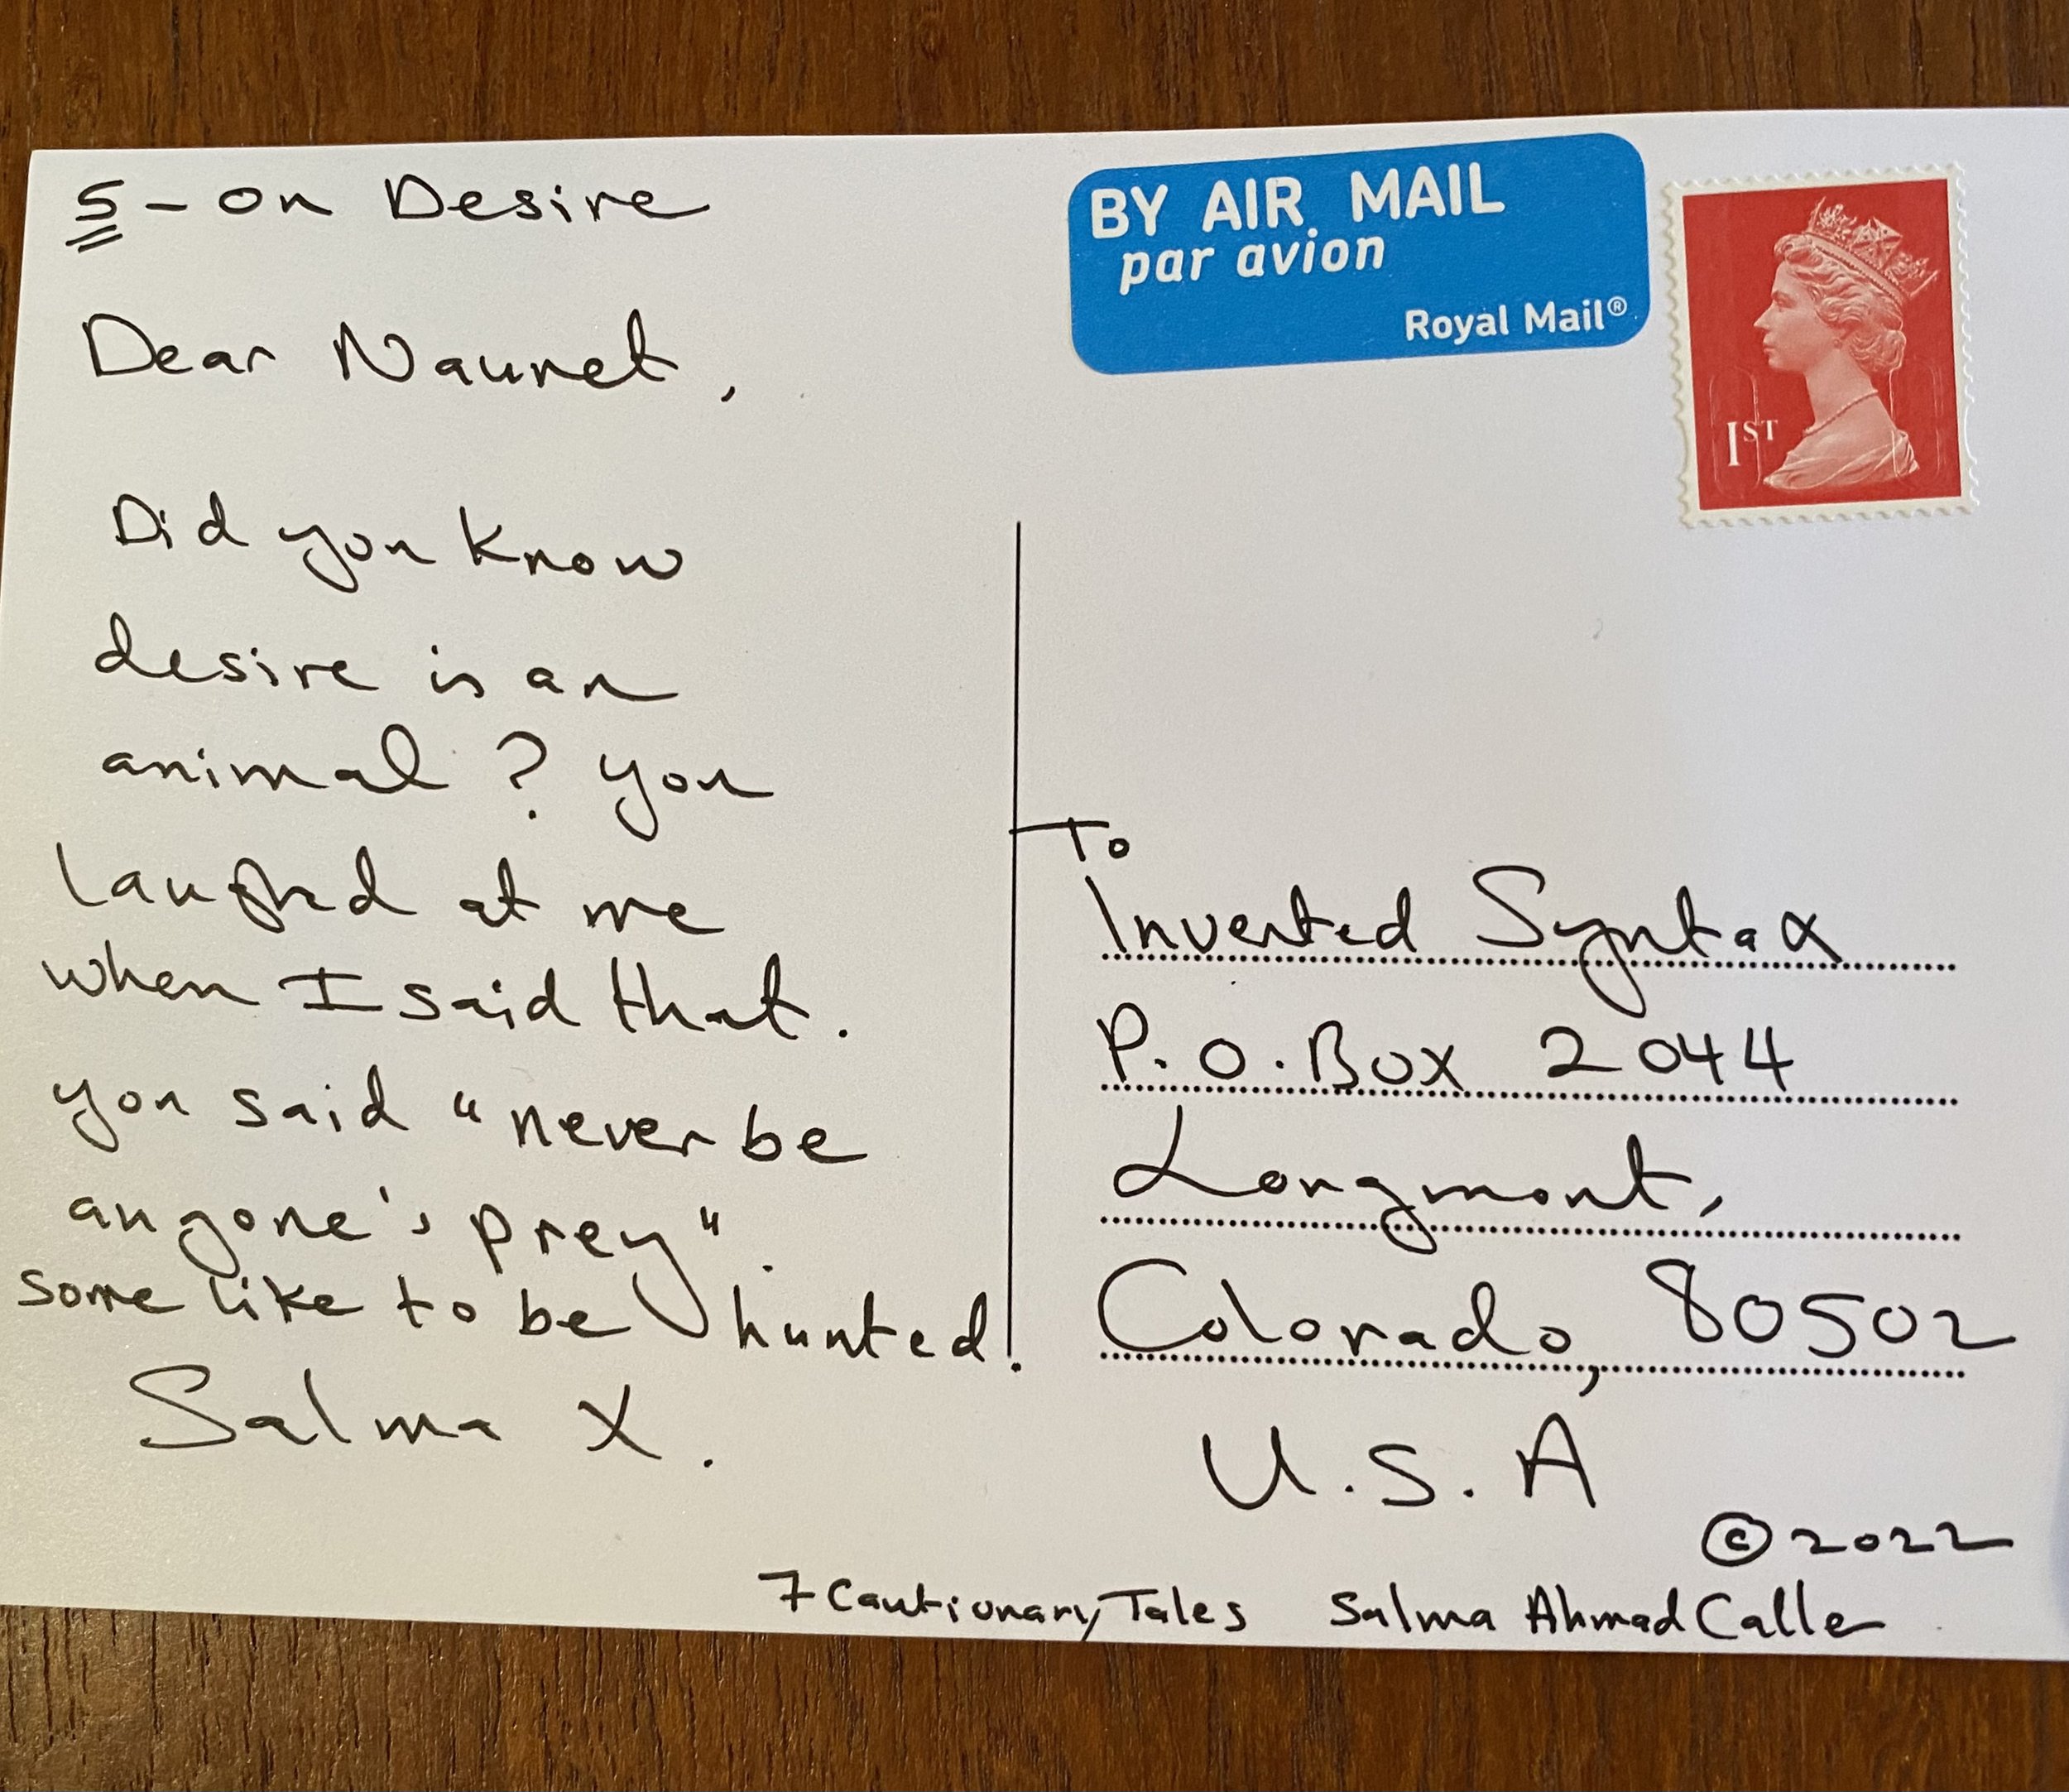 5 - On Desire
Dear Naunet,
Did you know
desire is an
animal? you
laughed at me
when I said that.
you said "never be
anyone's prey".
some like to be hunted.
Salma X.
BY AIR MAIL
par avion
Royal Mail®
1ST
To
Inverted Syntax
P.O. Box 2044
Longmont,
Colorado, 80502
U.S.A
© 2022
7 Cautionary Tales Salma Ahmad Caller